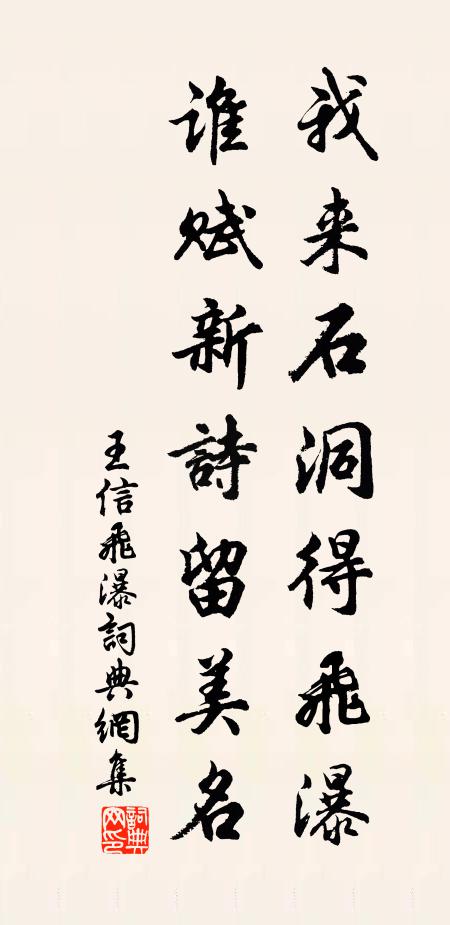 我来石洞得飛瀑
誰賦新詩留美名
王信飛瀑詞典網集
詞典网印